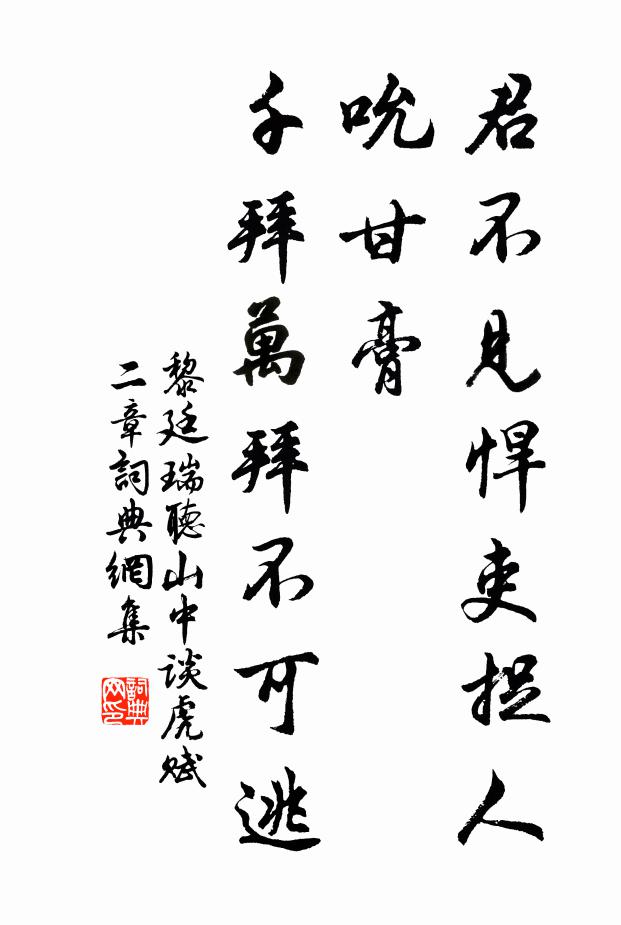 君不見悍吏捉人
吮甘膏
千拜萬拜不可逃
黎廷瑞聽山中谈虎赋
二章詞典網集
詞典
网印